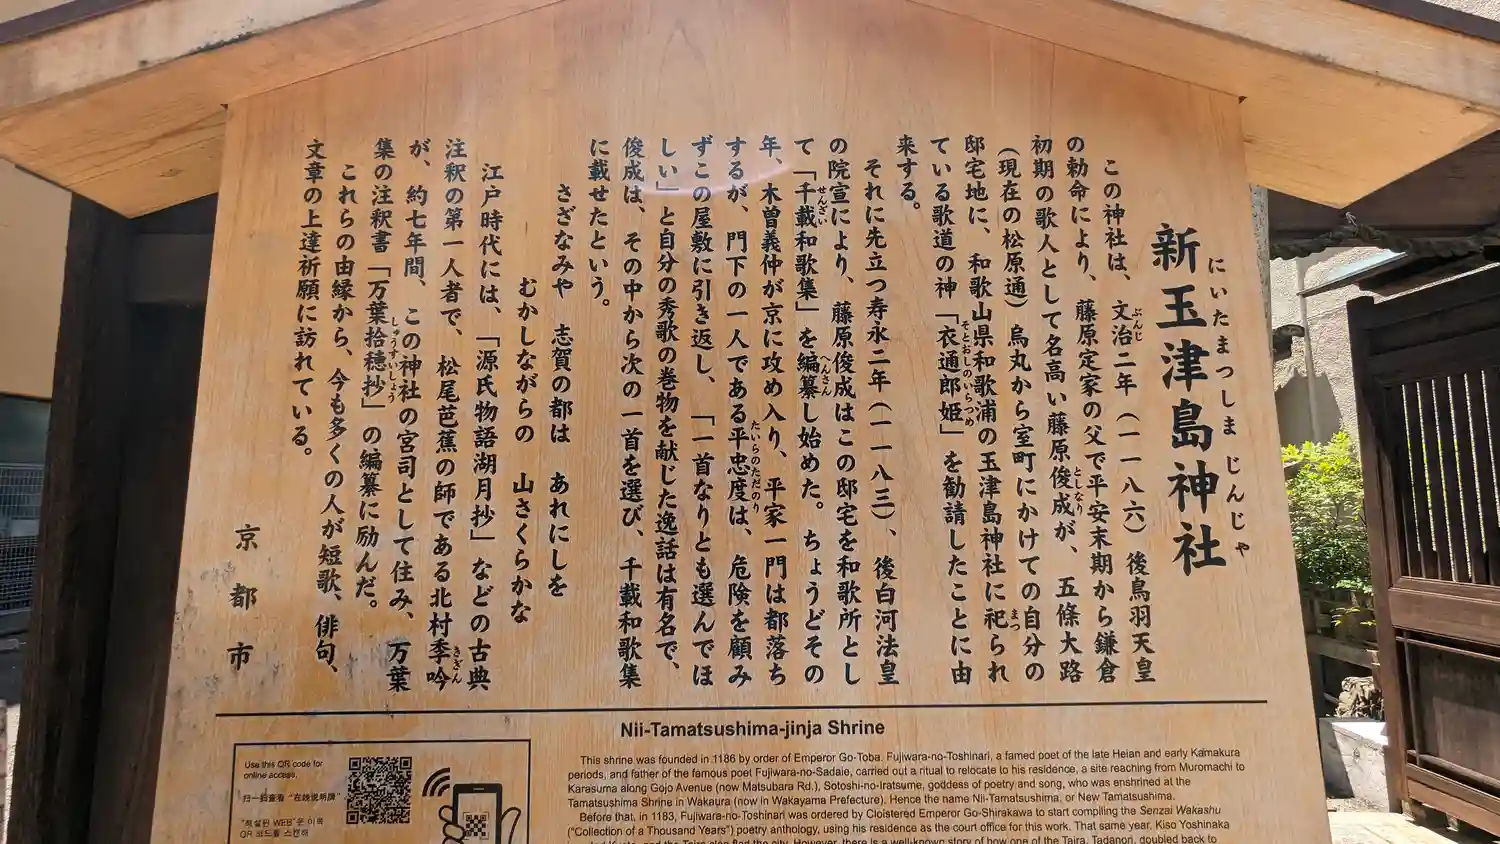 にいたまつしま じんじゃ
新玉津島神社
この神社は、文治二年（一一八六）後鳥羽天皇
の勅命により、藤原定家の父で平安末期から鎌倉
初期の歌人として名高い藤原俊成が、五條大路
（現在の松原通）烏丸から室町にかけての自分の
邸宅地に、和歌山県和歌浦の玉津島神社に祀られ
ている歌道の神「衣通郎姫」を勧請したことに由
来する。
それに先立つ寿永二年（一一八三）、後白河法皇
の院宣により、藤原俊成はこの邸宅を和歌所とし
て「千載和歌集」を編纂し始めた。ちょうどその
年、木曽義仲が京に攻め入り、平家一門は都落ち
するが、門下の一人である平忠度は、危険を顧み
ずこの屋敷に引き返し、「一首なりとも選んでほ
しい」と自分の秀歌の巻物を献じた逸話は有名で、
俊成は、その中から次の一首を選び、千載和歌集
に載せたという。
さざなみや 志賀の都は あれにしを
むかしながらの 山さくらかな
江戸時代には、「源氏物語湖月抄」などの古典
注釈の第一人者で、松尾芭蕉の師である北村季吟
が、約七年間、この神社の宮司として住み、万葉
集の注釈書「万葉拾穂抄」の編纂に励んだ。
これらの由縁から、今も多くの人が短歌、俳句、
文章の上達祈願に訪れている。
京都市
ぶんじ
としなり
まつ
そとおしのいらつめ
せんざい
へんさん
たいらのただのり
きぎん
しゅうすいしょう
Nii-Tamatsushima-jinja Shrine
This shrine was founded in 1186 by order of Emperor Go-Toba. Fujiwara-no-Toshinari, a famed poet of the late Heian and early Kamakura
periods, and father of the famous poet Fujiwara-no-Sadaie, carried out a ritual to relocate to his residence, a site reaching from Muromachi to
Karasuma along Gojo Avenue (now Matsubara Rd.), Sotoshi-no-Iratsume, goddess of poetry and song, who was enshrined at the
Tamatsushima Shrine in Wakaura (now in Wakayama Prefecture). Hence the name Nii-Tamatsushima, or New Tamatsushima.
Before that, in 1183, Fujiwara-no-Toshinari was ordered by Cloistered Emperor Go-Shirakawa to start compiling the Senzai Wakashu
("Collection of a Thousand Years") poetry anthology, using his residence as the court office for this work. That same year, Kiso Yoshinaka
the Taira clan fled the city. However, there is a well-known story of how one of the Taira, Tadanori, doubled back to
Use this QR code for
online access.
扫一扫查看“在线说明牌”
"해설판 WEB"은 이쪽
QR 코드를 스캔해